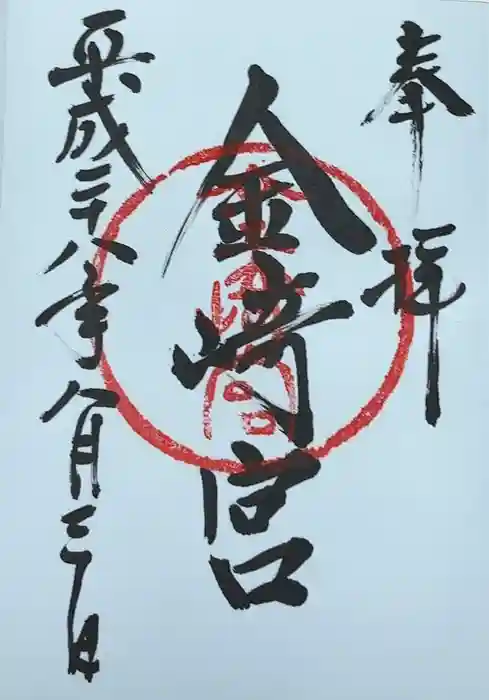 奉拝
金崎宮
平成二十八年八月三十日